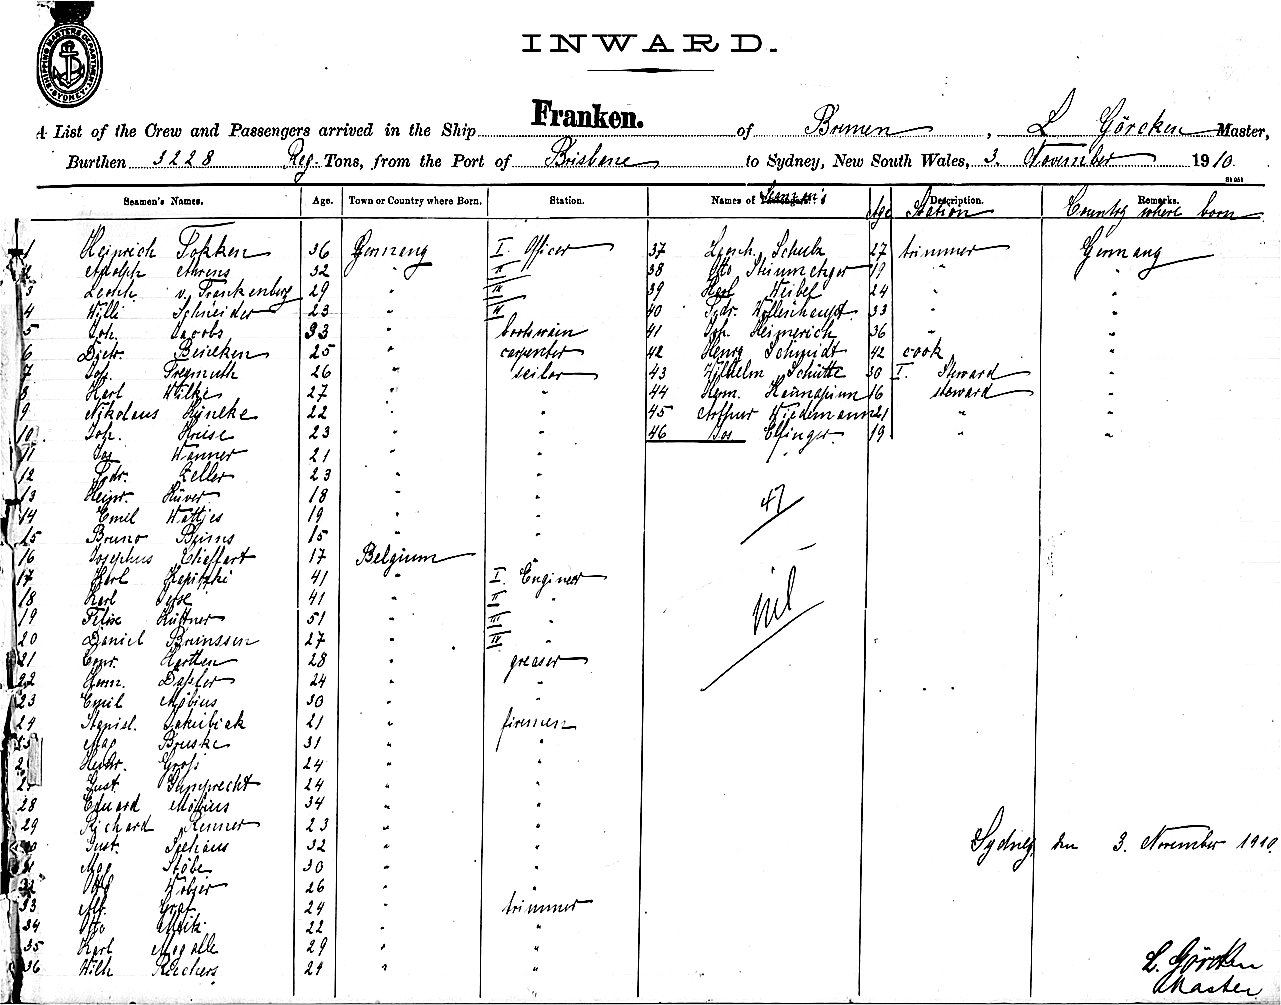 SHIPPING MASTERS DEPARTMENT SYDNEY
INWARD.
A List of the Crew and Passengers arrived in the Ship Franken. of Bremen, L Görcken Master,
Burthen 3228 Reg. Tons, from the Port of Brisbane to Sydney, New South Wales, 3. November 1910.
Seamen's Names. Age. Town or Country where Born. Station. Names of Seamen's Age Description. Station Remarks. Country where born
1 Heinrich Fokken 36 Germany I. Officer 37 Schulz 27 trimmer Germany
2 Adolph Ahrens 32 " II " 38 Otto Steinmetzger 19 " "
3 Leonh. v. Frankenberg 29 " III " 39 Karl Weibel 24 " "
4 Willi Schneider 23 " IV " 40 Fydr. 33 " "
5 Joh. Jacobs 33 " bootswain 41 Joh. Heimerich 36 " "
6 Dietr. Beneken 25 " carpenter 42 Henry Schmidt 42 cook "
7 Joh. Freymuth 26 " seilor 43 Wilhelm Schütte 30 I. Steward "
8 Karl Wilke 27 " " 44 Herm. 16 steward "
9 Nikolaus Hyneke 22 " " 45 Arthur Wiedemann 21 " "
10 Joh. Kriese 23 " " 46 Jos Elfinger 19 " "
11 Jos Wanner 21 " "
12 Fydr. Zeller 23 " "
13 Heinr. Hüver 18 " " 47
14 Emil Wattjes 19 " "
15 Bruno Beims 15 " "
16 Josephus 17 Belgium "
17 Karl 41 " I. Engineer
18 Karl Jesse 41 " II " nil
19 Felix Küttner 51 " III "
20 Daniel Brinssen 27 " IV "
21 Conr. Harthen 28 " greaser
22 Herm. Dapfer 24 " "
23 Emil Möbius 30 " "
24 Stanisl. Jakubiak 21 " firemen
25 Max Bruske 31 " "
Groß 24 " "
27 Gust Gumprecht 24 " "
28 Eduard Möbius 34 " "
29 Richard Renner 23 " "
30 Gust. Seehaus 32 " " Sydney, den 3. November 1910.
31 Max Stöbe 30 " "
32 26 " "
33 Alb. Graf 24 " trimmer
34 Otto 22 " "
35 Karl Magalle 29 " "
36 Wilh Reichers 29 " "
L. Görcken
Master